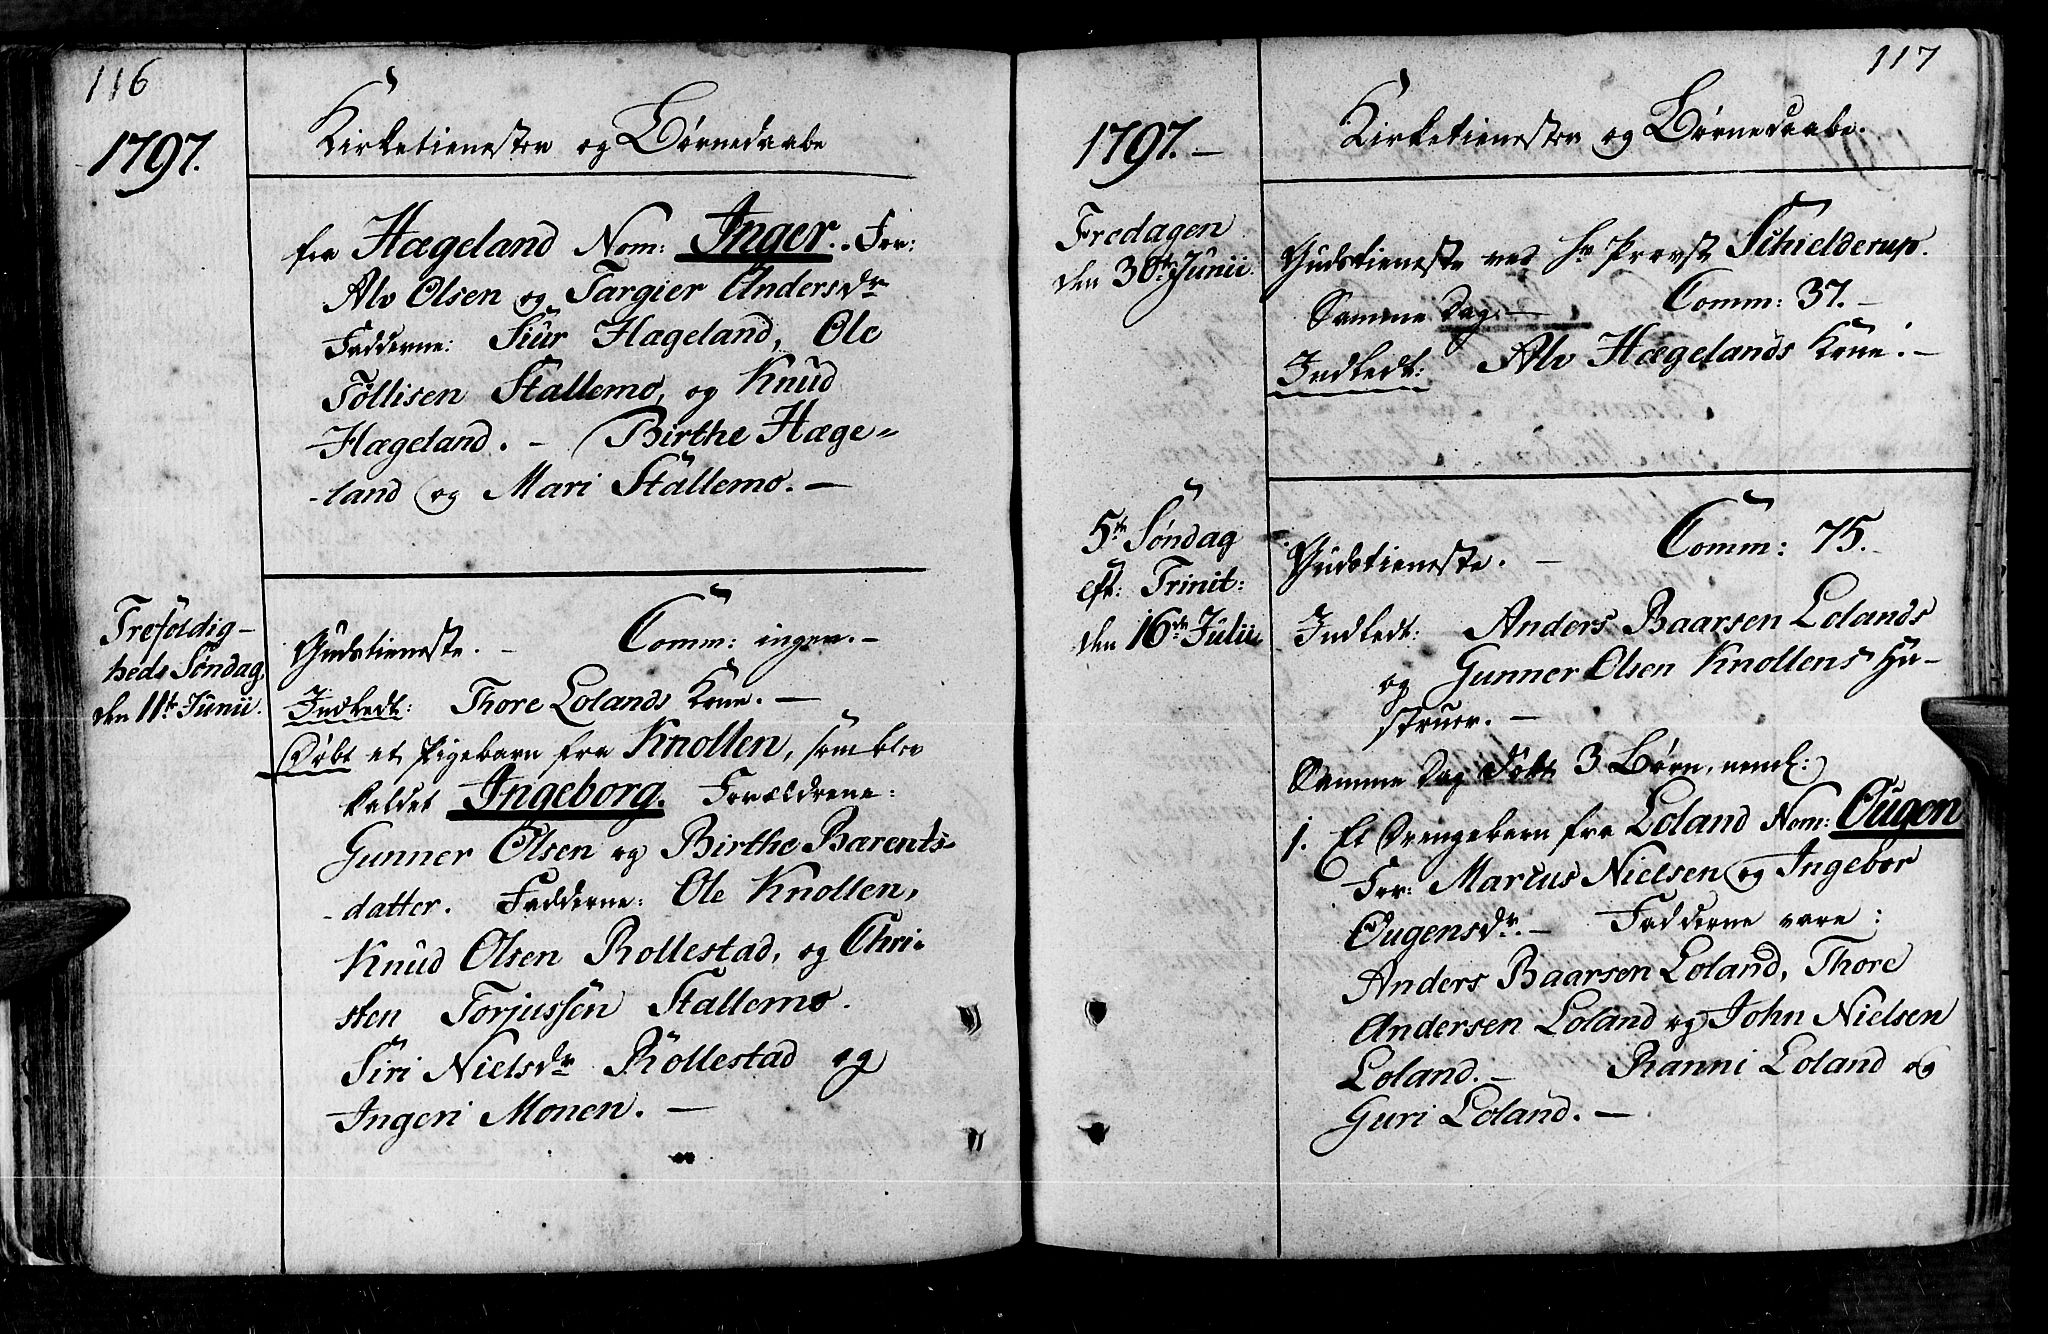 116
1797.
Kirketienester og Børnedaabe
fra Hægeland Nom: Inger. For:
Alv Olsen og Targier Andersdr
Fadderne: Siur Hægeland, Ole
Tøllisen Stallemo, og Knud
Hægeland. - Birthe Hæge=
-land og Mari Stallemo. -
Trefoldig-
heds Søndag,
den 11te Junii.
Gudstieneste. - Comm: ingen. -
Indledt: Thore Lolands Kone. -
Døbt et Pigebarn fra Knollen, som blev
kaldet Ingeborg. Forældrene:
Gunner Olsen og Birthe Barents-
-datter. Fadderne: Ole Knollen,
Knud Olsen Rollestad, og Chri-
sten Torjussen Stallemo.
Siri Nielsdr Rollestad og
Ingeri Monen. -
117
1797. -
Kirketienester og Børnedaabe.
Fredagen
den 30te Junii.
Gudstieneste ved Hr Provst Schielderup.
Samme Dag. - Comm: 37. -
Indledt: Alv Hægelands Kone. -
5te Søndag
eft: Trinit:
den 16de Julii
Gudstieneste. - Comm: 75. -
Indledt: Anders Baarsen Lolands
og Gunner Olsen Knollens Hu-
struer. -
Samme Dag Døbt 3 Børn, neml:
1. Et Drengebarn fra Loland Nom: Ougen
For: Marcus Nielsen og Ingebor
Ougensdr. - Fadderne vare:
Anders Baarsen Loland, Thore
Andersen Loland og John Nielsen
Loland. - Ranni Loland og
Guri Loland. -